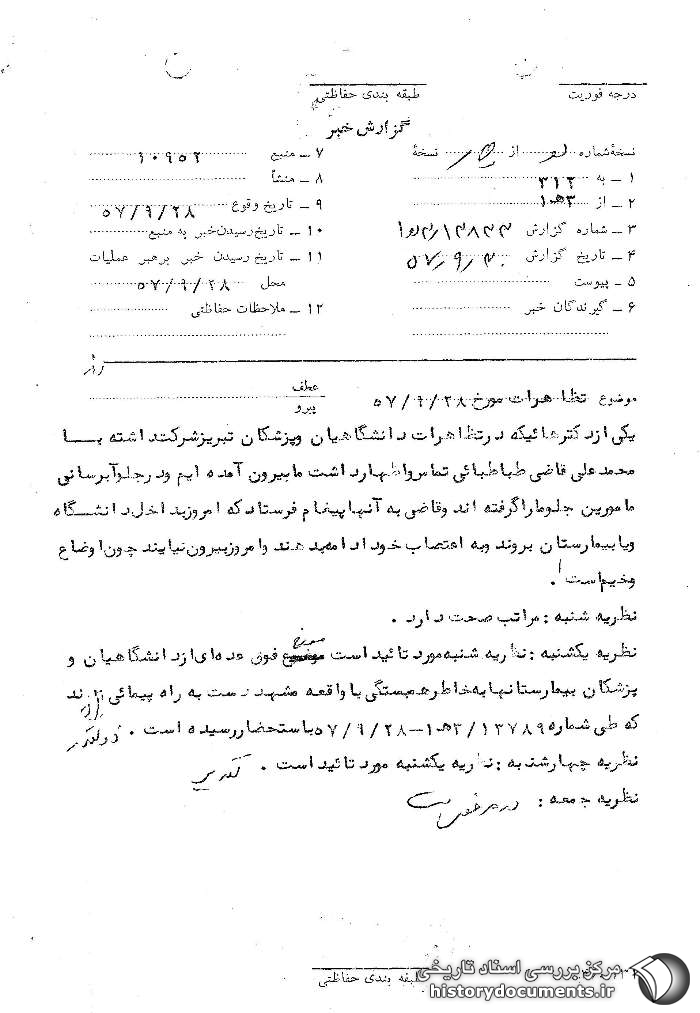 درجه فوریت
طبقه بندی حفاظتی
گزارش خبر
نسخهٔ شماره از نسخهٔ
۱ ــ به ۳۱۲
۲ ــ از ۱۰ﻫ۳
۳ ــ شماره گزارش
۴ ــ تاریخ گزارش ۵۷/۹/۳۰
۵ ــ پیوست
۶ ــ گیرندگان خبر
۷ ــ منبع ۱۰۹۵۲
۸ ــ منشأ
۹ ــ تاریخ وقوع ۵۷/۹/۲۸
۱۰ ــ تاریخ رسیدن خبر به منبع
۱۱ ــ تاریخ رسیدن خبر برهبر عملیات
محل ۵۷/۹/۲۸
۱۲ ــ ملاحظات حفاظتی
عطف
پیرو
موضوع تظاهرات مورخ ۵۷/۹/۲۸
یکی از دکترهائیکه درتظاهرات دانشگاهیان وپزشکان تبریزشرکتداشته با
محمدعلی قاضی طباطبائی تماس واظهارداشت مابیرون آمده ایم ودرجلوآبرسانی
مامورین جلوماراگرفته اند وقاضی به آنهاپیغام فرستادکه امروزبداخل دانشگاه
ویابیمارستان بروند وبه اعتصاب خود ادامه بدهند وامروزبیرون نیایند چون اوضاع
وخیم است .
نظریه شنبه : مراتب صحت دارد .
نظریه یکشنبه : نظریه شنبه مورد تائید است مورخ فوق عده ای ازدانشگاهیان و
پزشکان بیمارستانهابه خاطرهمبستگی با واقعه مشهد دست به راه پیمائی زدند
که طی شماره ۱۳۷۸۹/۱۰ﻫ۳-۵۷/۹/۲۸ باستحضاررسیده است .
نظریه چهارشنبه : نظریه یکشنبه مورد تائید است .
نظریه جمعه :
طبقه بندی حفاظتی
مرکز بررسی اسناد تاریخی
historydocuments.ir